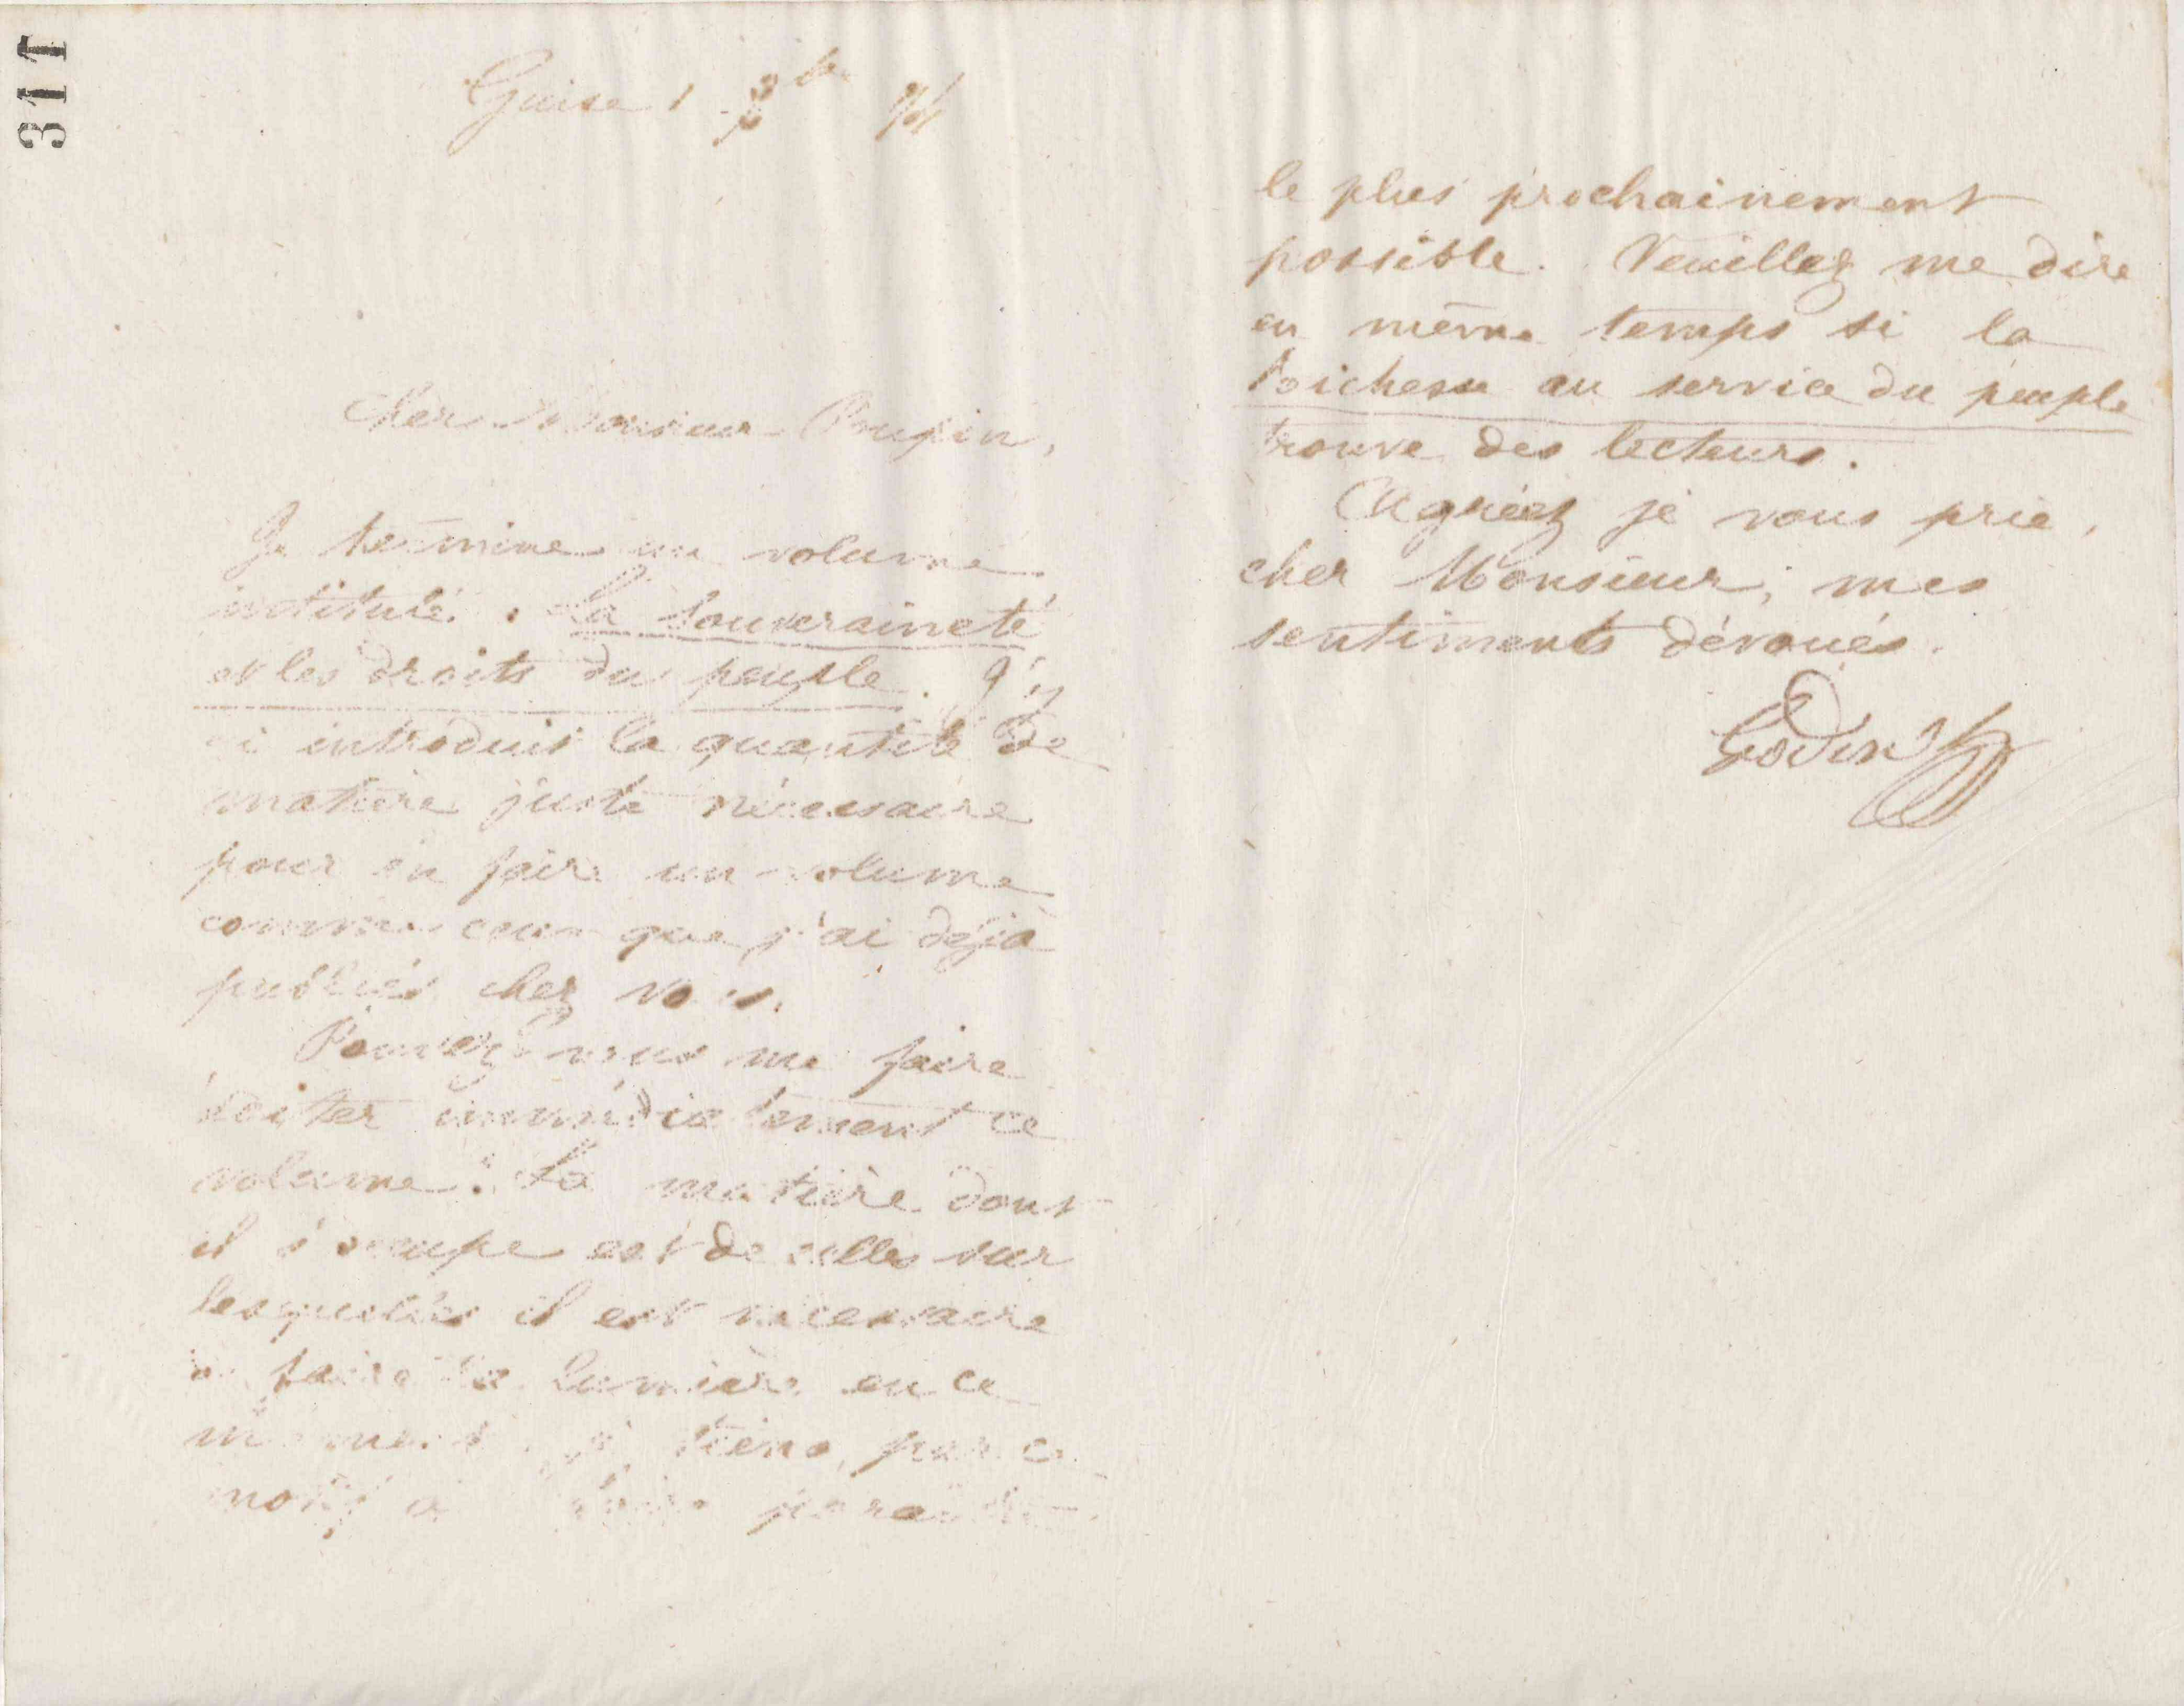 311
Guise 1
Cher Monsieur
Je termine un volume
intitulé : La Souveraineté
et les droits du peuple. J'y
ai introduit la quantité de
matière juste nécessaire
pour en faire un volume
comme ceux que j'ai déjà
publiés chez vous.
Pouvez vous me faire
éditer immédiatement ce
volume. La matière dont
il s'occupe est de celles sur
lesquelles il est nécessaire
de faire la lumière en ce
moment. Je tiens, par ce
motif à faire paraître
le plus prochainement
possible. Veuillez me dire
en même temps si la
Richesse au service du peuple
trouve des lecteurs.
Agréez je vous prie,
cher Monsieur, mes
sentiments dévoués.
Godin